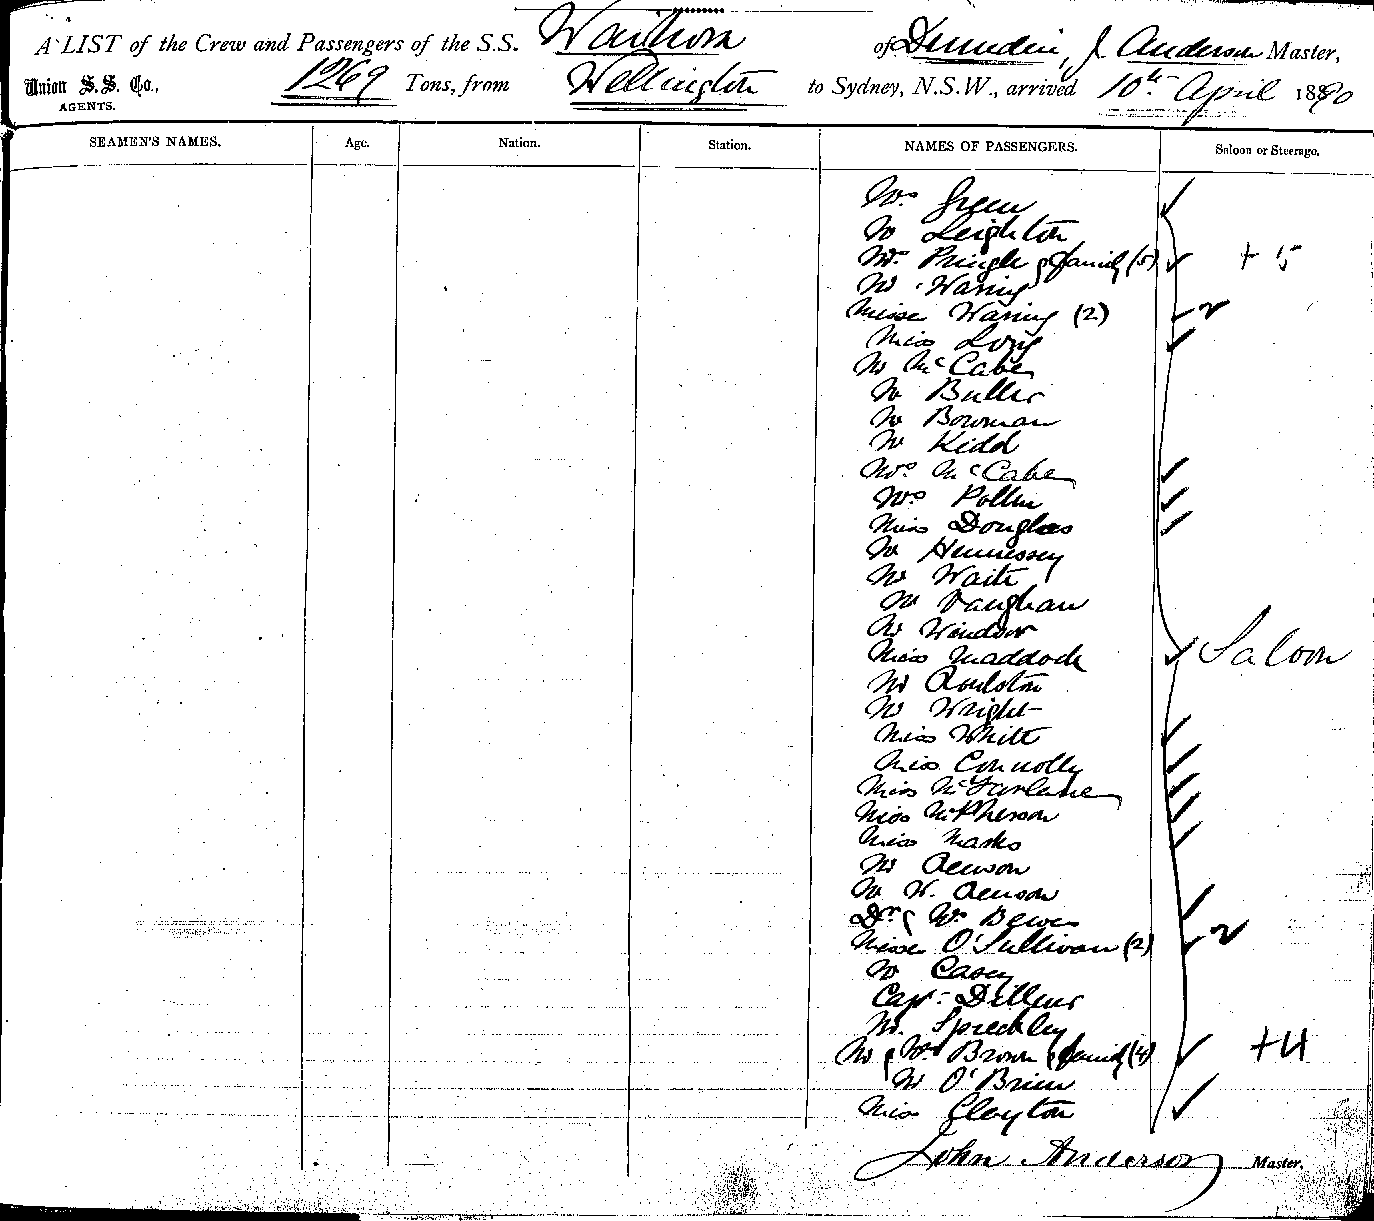 A LIST of the Crew and Passengers of the S.S. Waihora of Dunedin, J Anderson Master,
Union S.S. Co., 1269 Tons, from Wellington to Sydney, N.S.W., arrived 10th April 1890
AGENTS.
SEAMEN'S NAMES. Age. Nation. Station. NAMES OF PASSENGERS. Saloon or Steerage.
Mrs Green
Mr Leighton
Mrs Pringle & family (5) + 5
Mr Waring
Misses Waring (2) 2
Miss
Mr McCabe
Mr Butler
Mr Bowman
Mr Kidd
Mrs McCabe
Mrs Pollen
Miss Douglas
Mr Hennessey
Mr Waite
Mr Vaughan
Mr Windsor
Miss Maddock Saloon
Mr Roulston
Mr Wright
Miss White
Miss Connolly
Miss McFarlane
Miss McPherson
Miss Marks
Mr
Mr W.
Dr & Mrs Bewes
Misses O'Sullivan (2) 2
Mr Casey
Capt.
Mr. Spreckley
Mr & Mrs Brown & family (4) +4
Mr O'Brien
Miss Clayton
John Anderson Master.